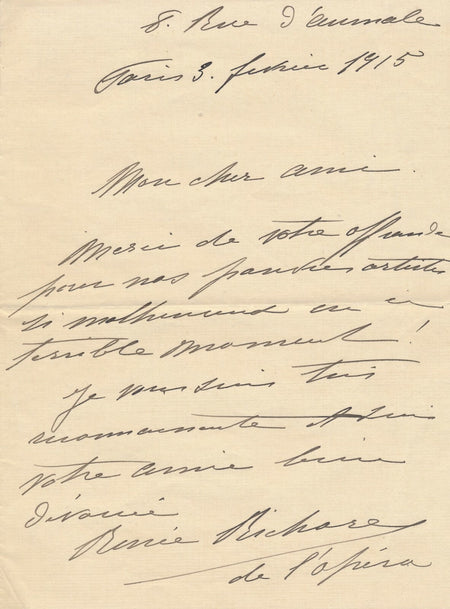 8. Rue d'aumale
Paris 3. février 1915
Mon cher ami.
Merci de votre offrande
pour nos pauvres artistes
si malheureux en ce
terrible moment!
Je vous suis très
reconnaissante et suis
votre amie bien
dévouée
Renée Richard
de l'opéra